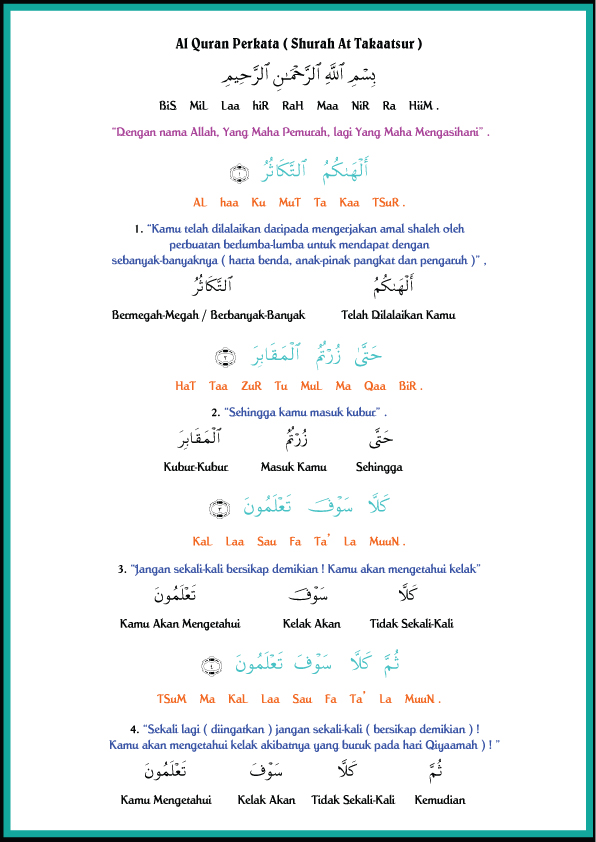 Al Quran Perkata ( Shurah At Takaatsur )
بِسْمِ ٱللَّهِ ٱلرَّحْمَـٰنِ ٱلرَّحِيمِ
BiS MiL Laa hiR RaH Maa NiR Ra HiiM .
"Dengan nama Allah, Yang Maha Pemurah, lagi Yang Maha Mengasihani" .
أَلْهَىٰكُمُ ٱلتَّكَاثُرُ ١
AL haa Ku MuT Ta Kaa TSuR .
1. "Kamu telah dilalaikan daripada mengerjakan amal shaleh oleh
perbuatan berlumba-lumba untuk mendapat dengan
sebanyak-banyaknya ( harta benda, anak-pinak pangkat dan pengaruh )" ,
أَلْهَىٰكُمُ ٱلتَّكَاثُرُ
Bermegah-Megah / Berbanyak-Banyak Telah Dilalaikan Kamu
حَتَّىٰ زُرْتُمُ ٱلْمَقَابِرَ ٢
HaT Taa ZuR Tu MuL Ma Qaa BiR .
2. "Sehingga kamu masuk kubur" .
حَتَّىٰ زُرْتُمُ ٱلْمَقَابِرَ
Kubur-Kubur Masuk Kamu Sehingga
كَلَّا سَوْفَ تَعْلَمُونَ ٣
KaL Laa Sau Fa Ta' La MuuN .
3. "Jangan sekali-kali bersikap demikian ! Kamu akan mengetahui kelak"
كَلَّا سَوْفَ تَعْلَمُونَ
Kamu Akan Mengetahui Kelak Akan Tidak Sekali-Kali
ثُمَّ كَلَّا سَوْفَ تَعْلَمُونَ ٤
TSuM Ma KaL Laa Sau Fa Ta' La MuuN .
4. "Sekali lagi ( diingatkan ) jangan sekali-kali ( bersikap demikian ) !
Kamu akan mengetahui kelak akibatnya yang buruk pada hari Qiyaamah ) ! "
ثُمَّ كَلَّا سَوْفَ تَعْلَمُونَ
Kamu Mengetahui Kelak Akan Tidak Sekali-Kali Kemudian